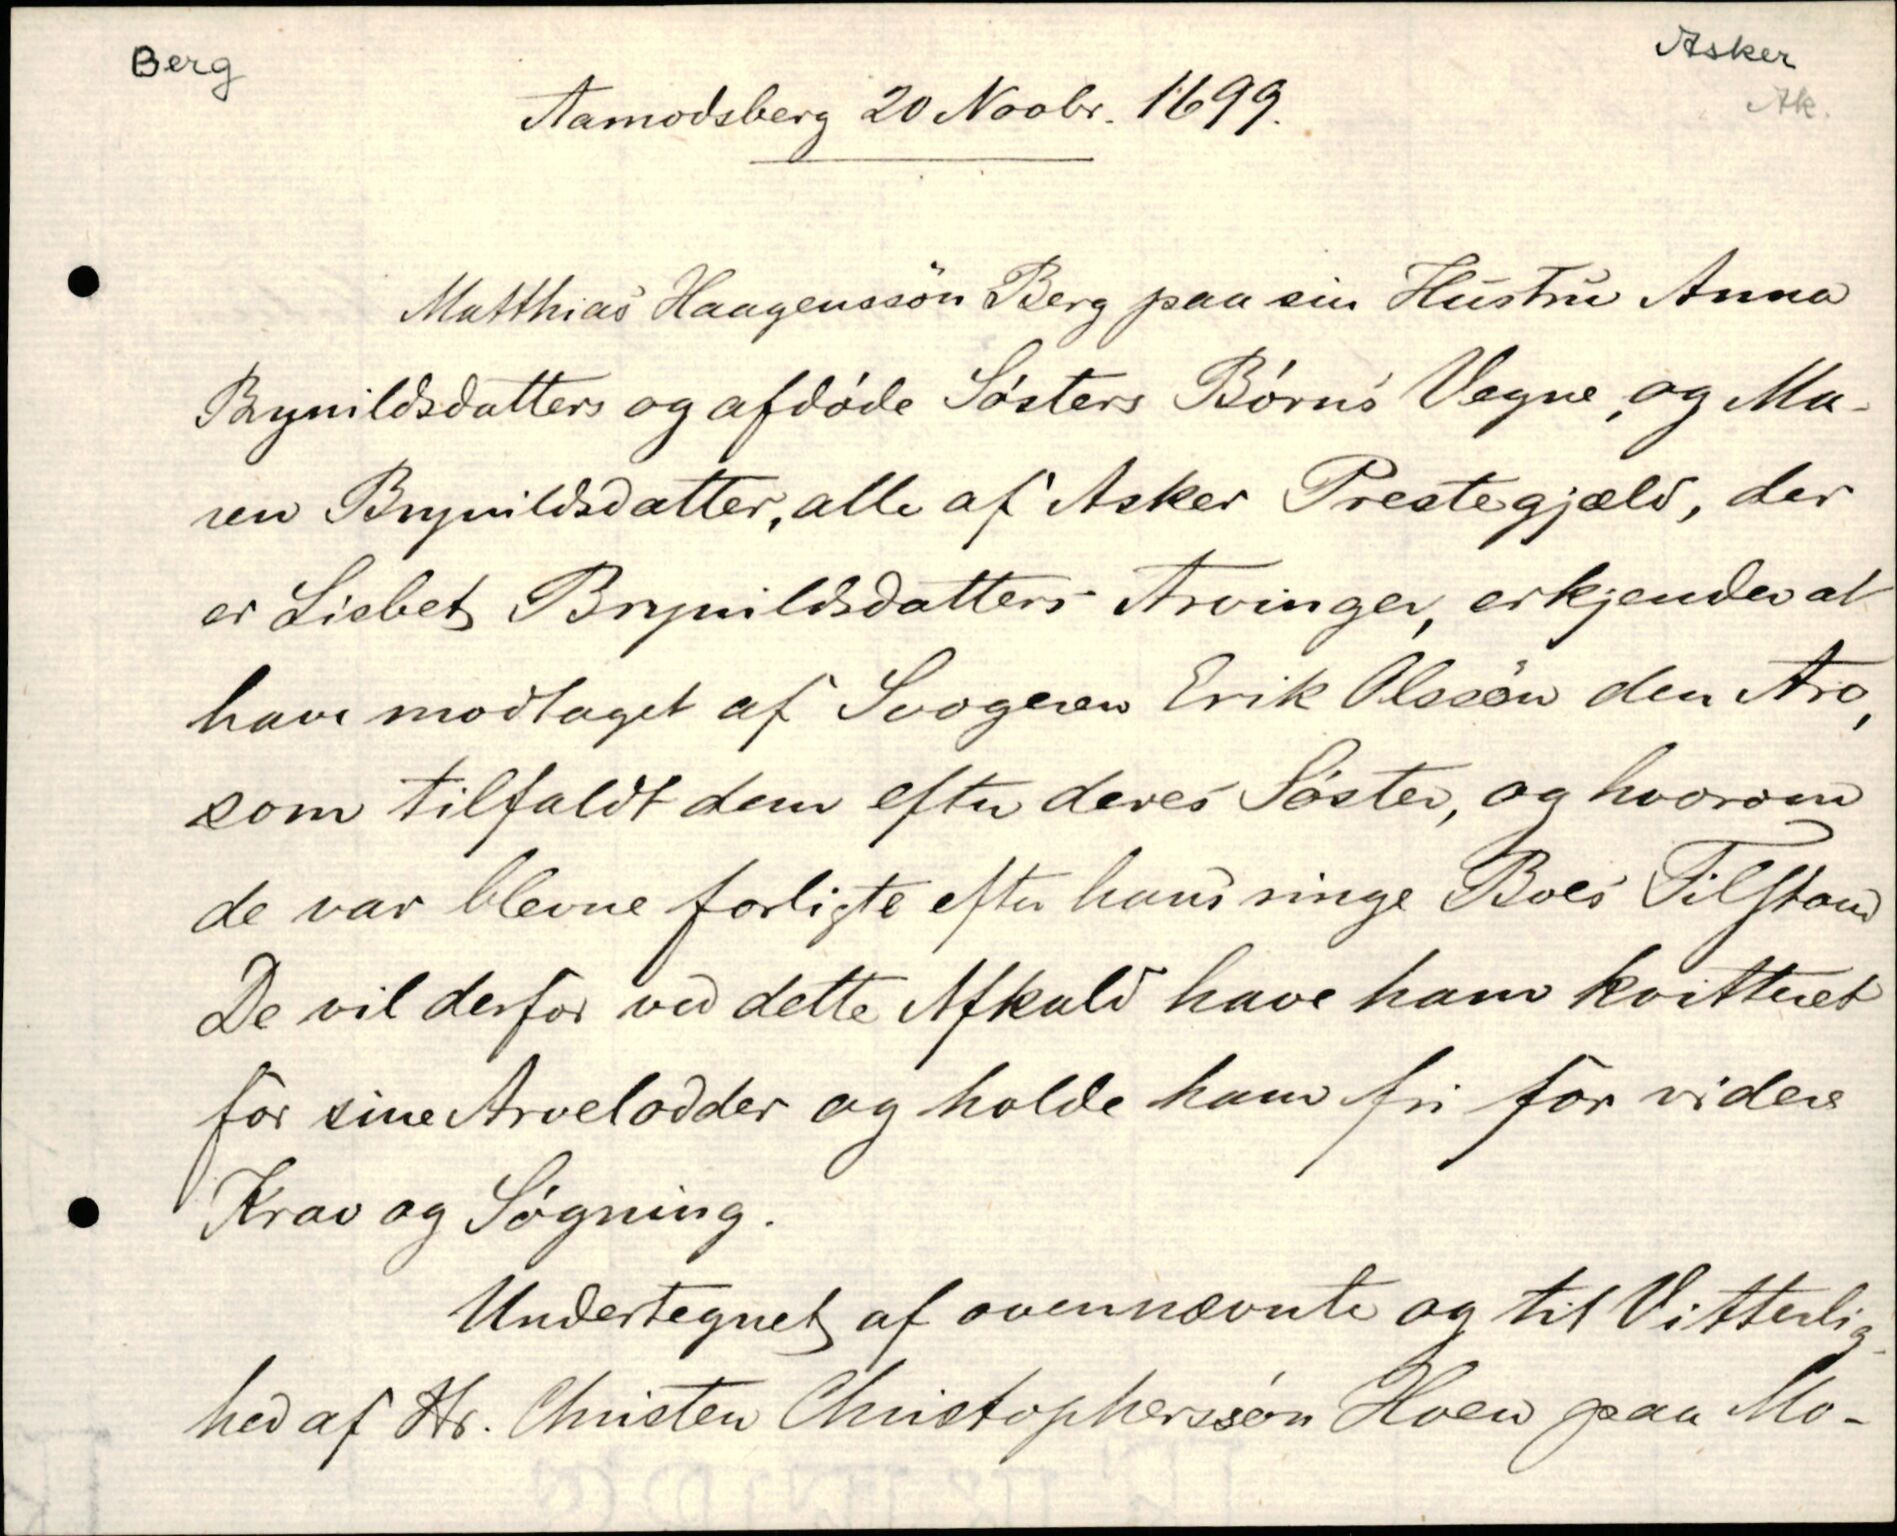 Berg
Asker
Ak.
Aamodsberg 20 Novbr. 1699.
Matthias Haagenssön Berg paa sin Hustru Anna
Brynildsdatters og afdøde Søsters Børns Vegne, og Ma-
ren Brynildsdatter, alle af Asker Prestegjæld, der
er Lisbet Brynildsdatters Arvinger, erkjender at
have modtaget af Svogeren Erik Olssön den Arv,
som tilfaldt dem efter deres Søster, og hvorom
de var blevne forligte efter hans ringe Boes Tilstand
De vil derfor ved dette Afkald have ham kvitteret
for sine Arvelodder og holde ham fri for videre
Krav og Søgning.
Undertegnet af ovennævnte og til Vitterlig-
hed af Hr. Christen Christopherssøn Hoen paa Mo-